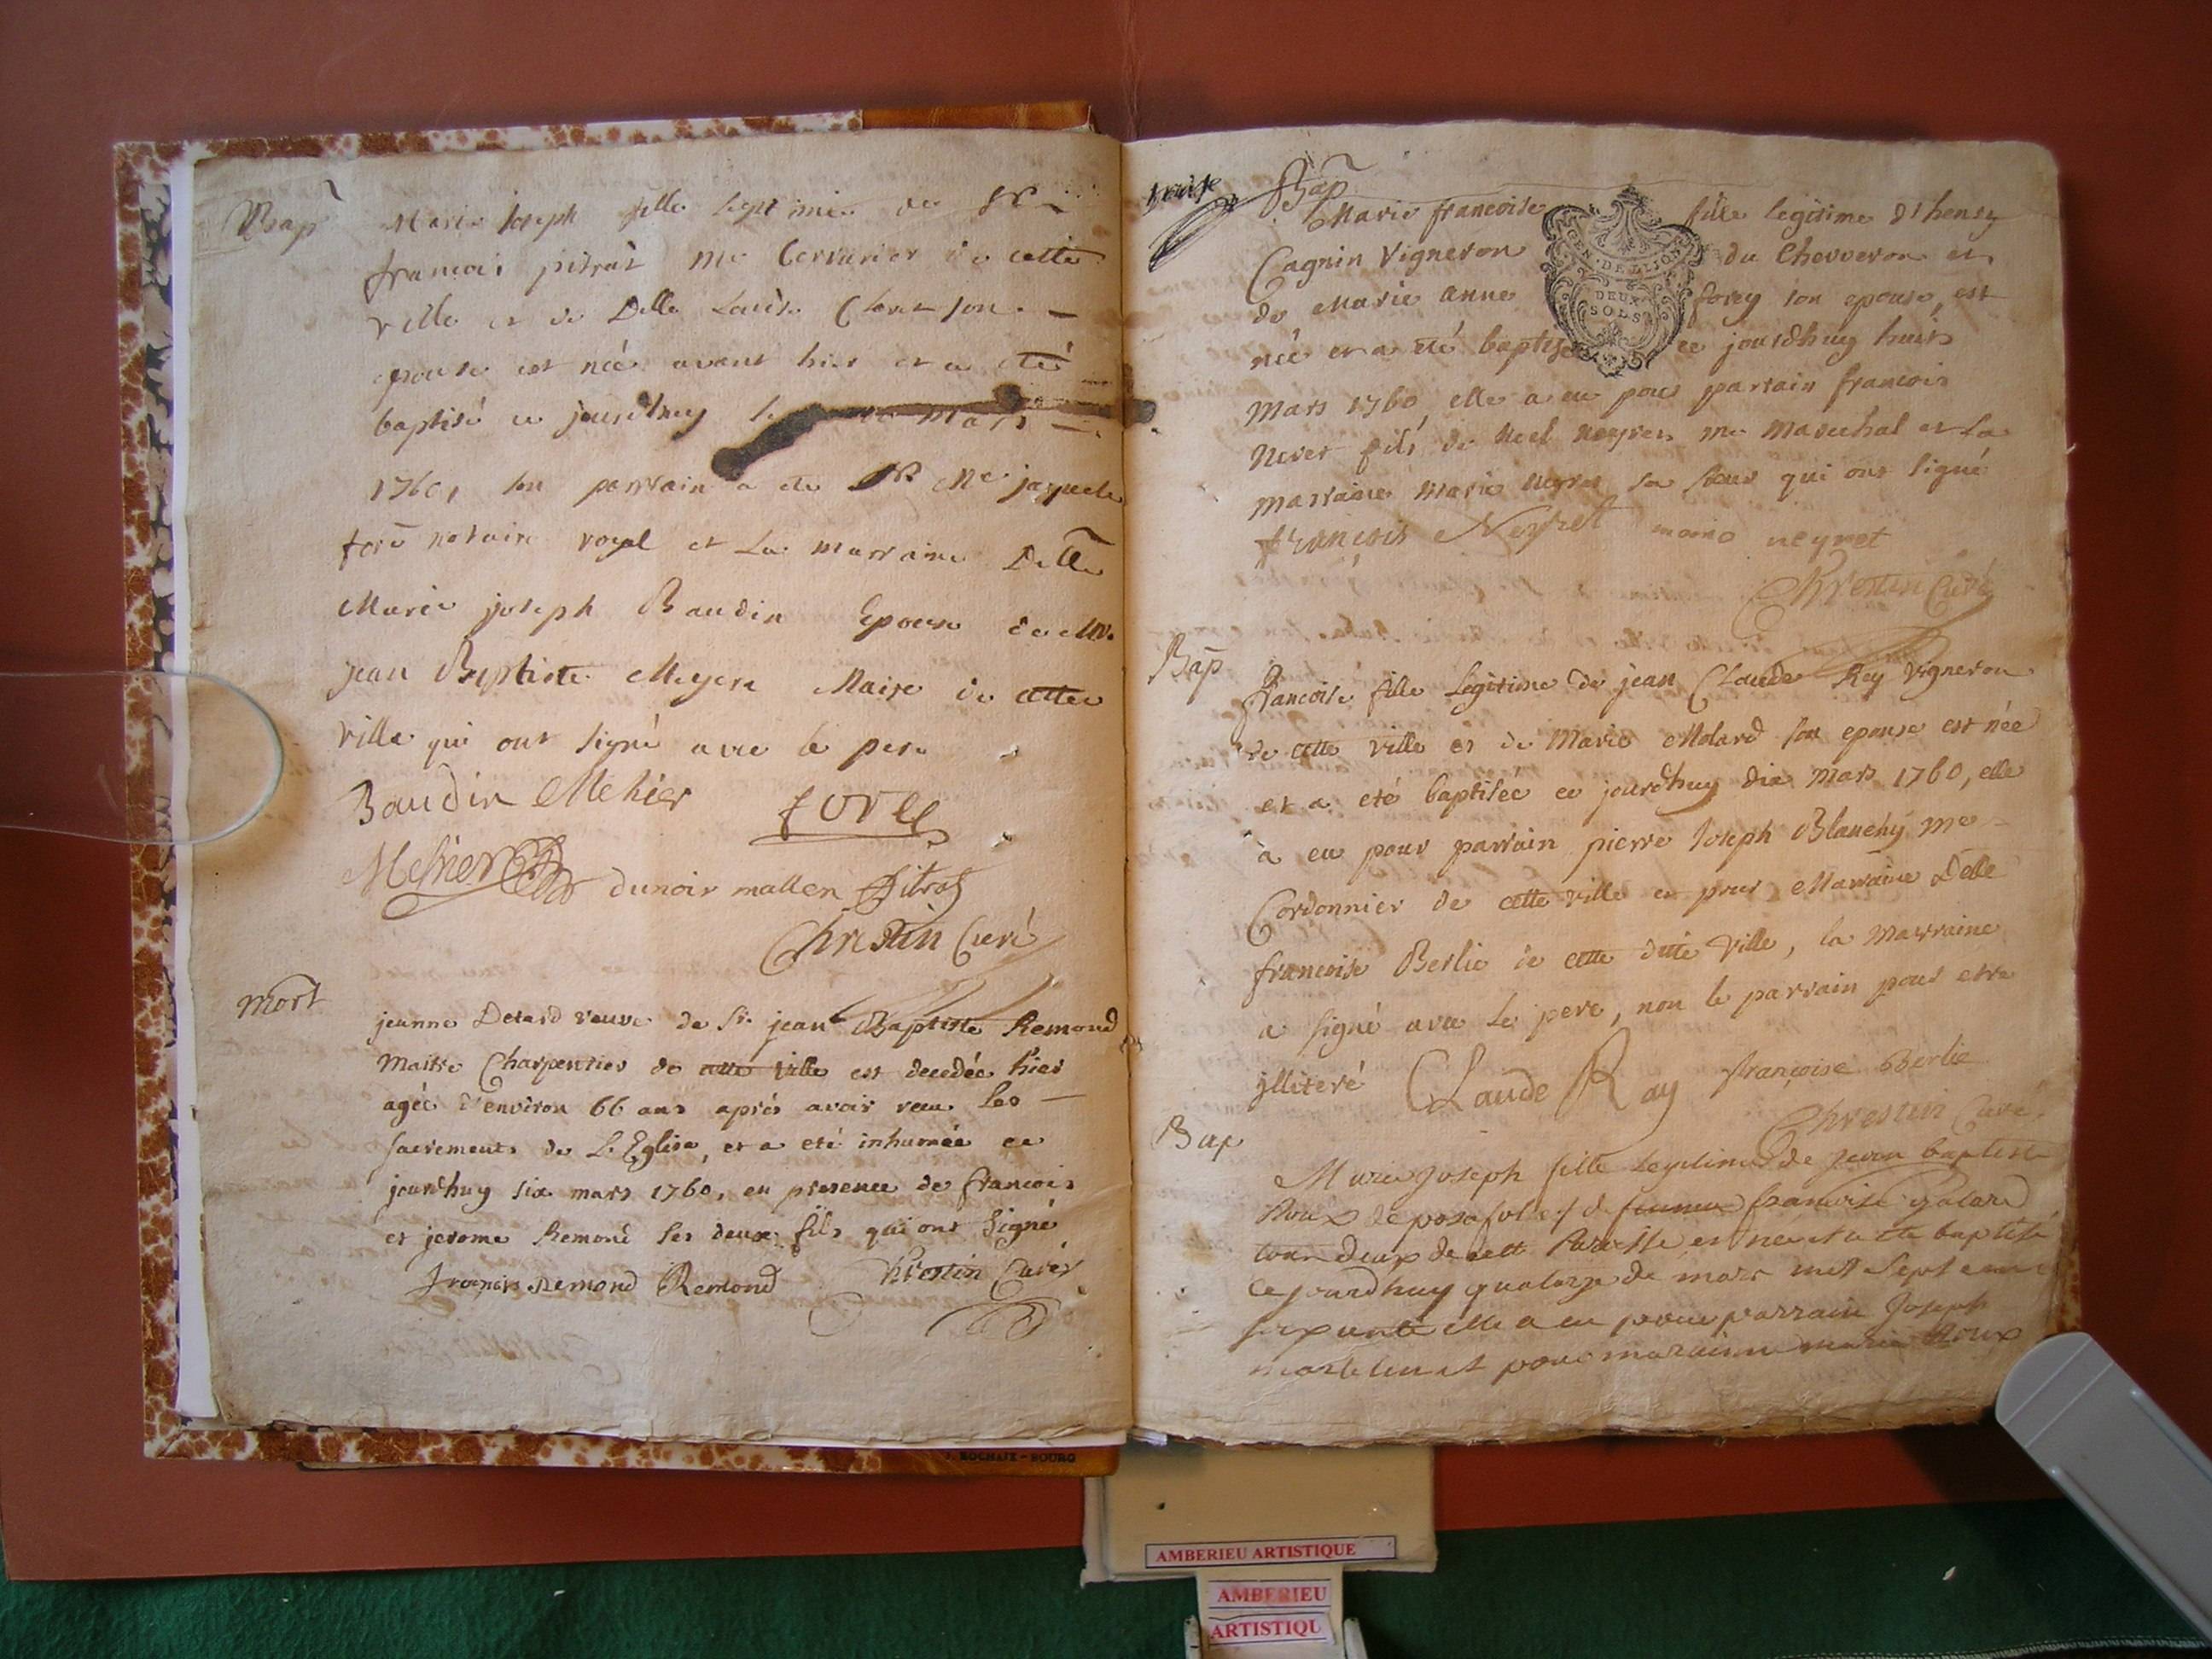 Bap
Marie Joseph fille legitime de Sr
francois pitrat Me Cerrurier de cette
ville et de Delle Louise son
epouse est née avant hier et a eté
baptisé ce jourdhuy mars
1760, son parrain a ete Sr Me jaques
foré notaire royal et La marraine Delle
Marie joseph Baudin Epouse de Mr
jean Baptiste Meyere Maire de cette
ville qui ont signé avec le pere
Baudin Mehier
forée
Mehier dunoir mallen Pitrat
Chrestin Curé
mort
jeanne Detard veuve de Sr. jean Baptiste Remond
Maitre Charpentier de cette ville est decedée hier
agée d'environ 66 ans aprés avoir recu les
sacrements de L'Eglise, et a eté inhumée ce
jourdhuy six mars 1760, en presence de francois
et jerome Remond ses deux fils qui ont signé
francois Remond Remond Chrestin Curé
treise
Bap
Marie francoise fille legitime d'henry
Cagnin Vigneron du Chevveron et
de Marie Anne forey son epouse, est
née et a eté baptisée ce jourdhuy huit
Mars 1760, elle a eu pour parrain francois
Neret fils de Noel Neyret me Marechal et La
marraine Marie Neyret sa soeur qui ont signé
françois Neyret marie neyret
Chrestin Curé
GEN. DE LION
DEUX
SOLS
Bap
francoise fille Legitime de jean Claude Rey Vigneron
de cette ville et de Marie Molard son epouse est née
et a eté baptisée ce jourdhuy dix Mars 1760, elle
a eu pour parrain pierre Joseph Blanchy me
Cordonnier de cette ville et pour Marraine Delle
francoise Berlie de cette ditte Ville, la Marraine
a signé avec le pere, non le parrain pour etre
illiteré Claude Ray françoise Berlie
Chrestin Curé
Bap
Marie Joseph fille Legitime de jean baptiste
Roux de et de francoise
tous deux de cette Paroisse est née et a ete baptisé
ce jourdhuy quatorze de mars mil sept cent
soixante elle a eu pour parrain Joseph
et pour maraine marie Roux
J. ROCHAIX - BOURG
AMBERIEU ARTISTIQUE
AMBERIEU
ARTISTIQU